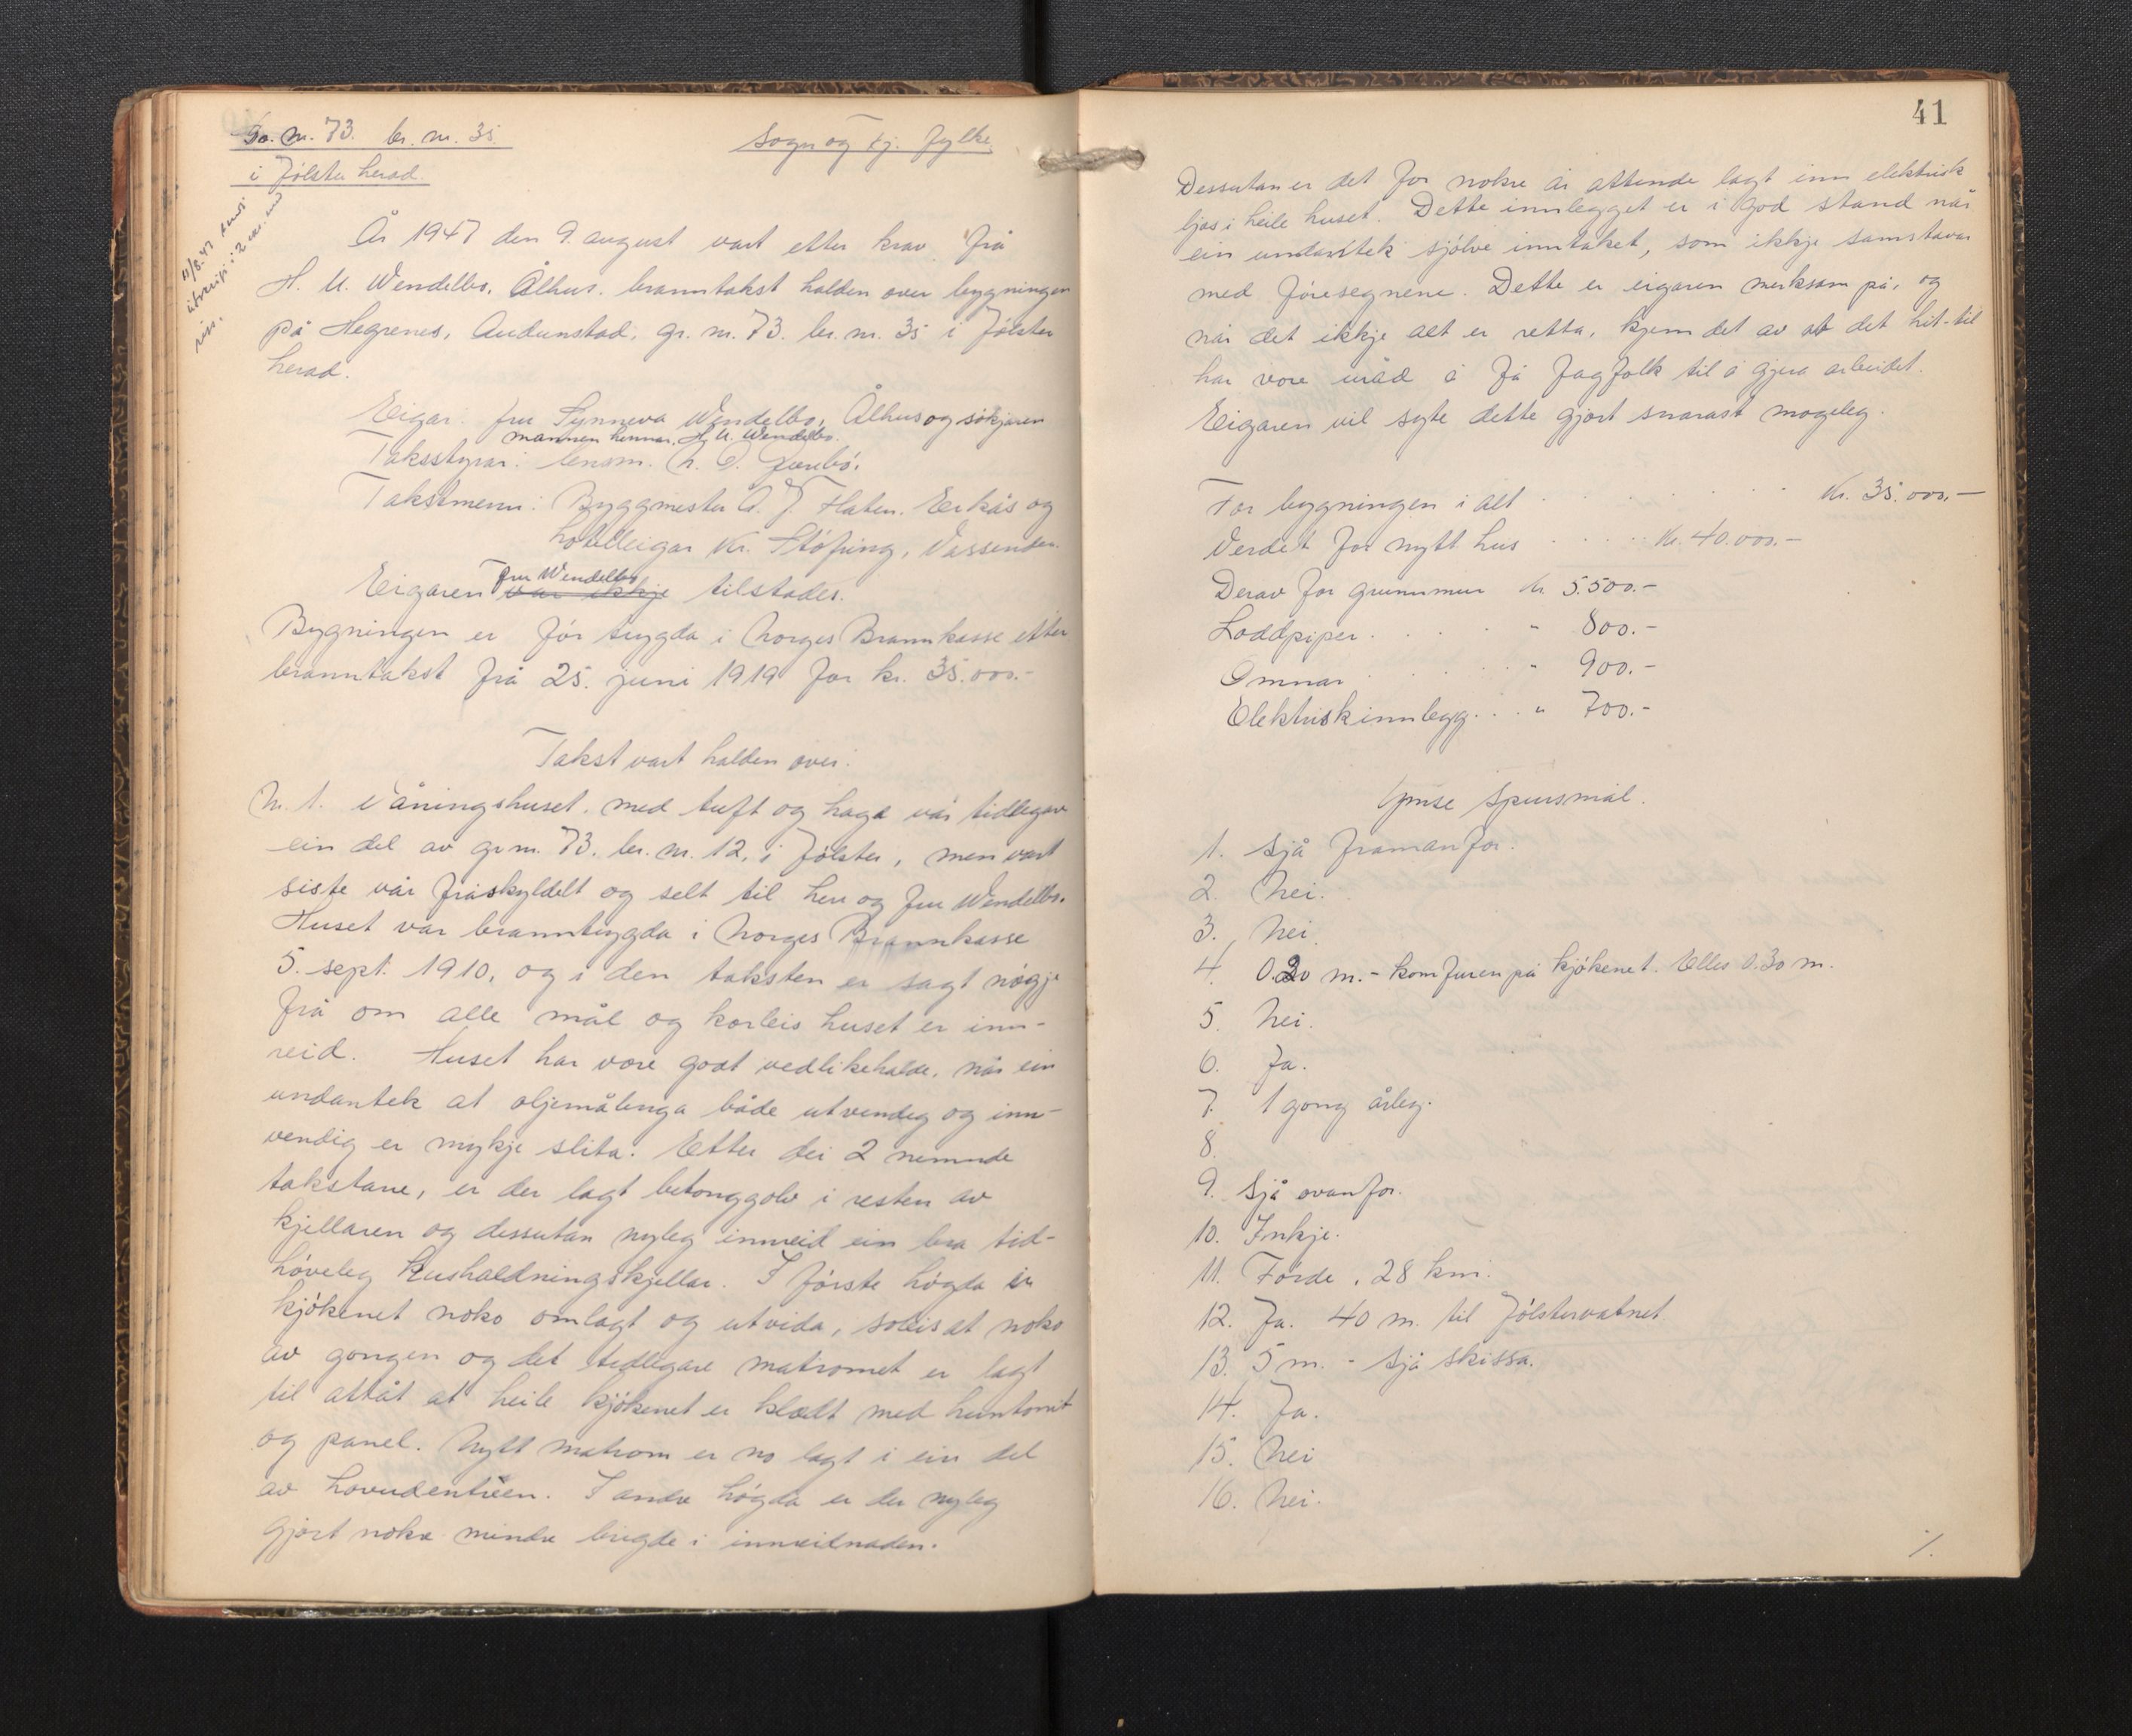 Gr. nr. 73. br. nr. 35.
Sogn og Fj. fylke.
i Jølster herad.
11/8.47 sendt
utskrift i 2 eks. med
riss.
År 1947 den 9. august vart etter krav frå
H. U. Wendelbo, Ålhus. branntakst halden over bygningen
på Hegrenes, Audunstad, gr. nr. 73. br. nr. 35 i Jølster
herad.
Eigar: fru Synneva Wendelbo, Ålhus og søkjaren
mannen hennar, H. U. Wendelbo.
Takststyrar: lensm. N. O.
Takstmenn: Byggmester A. J. Flaten. Eikås og
hotelleigar Kr. Støfring, Vassenden.
fru Wendelbo
Eigaren var ikkje tilstades.
Bygningen er før trygda i Norges Brannkasse etter
branntakst frå 25. juni 1919 for kr. 35.000.-
Takst vart halden over:
Nr. 1. Våningshuset. med tuft og hage var tidlegar
ein del av gr nr. 73. br. nr. 12. i Jølster, men vart
siste vår fråskyldelt og selt til herr og fru Wendelbo.
Huset var branntrygda i Norges Brannkasse
5. sept. 1910, og i den taksten er sagt nøgje
frå om alle mål og korleis huset er inn-
reid. Huset har vore godt vedlikehalde, når ein
undantek at oljemålinga både utvendig og inn-
vendig er mykje slita. Etter dei 2 nemnde
takstane, er der lagt betonggolv i resten av
kjellaren og dessutan nyleg innreid ein bra tid-
høveleg hushaldningskjellar. I første høgda er
kjøkenet noko omlagt og utvida, soleis at noko
av gongen og det tidlegare matromet er lagt
til attåt at heile kjøkenet er klædt med huntonit
og panel. Nytt matrom er no lagt i ein del
av hovudentréen. I andre høgda er der nyleg
gjort nokre mindre brigde i innreidnaden.
41
Dessutan er det for nokre år attende lagt inn elektrisk
ljos i heile huset. Dette innlegget er i god stand når
ein undantek sjølve inntaket, som ikkje samstavar
med føresegnene. Dette er eigaren merksam på, og
når det ikkje alt er retta, kjem det av at det hit-til
har vore uråd å få fagfolk til å gjera arbeidet.
Eigaren vil syte dette gjort snarast mogeleg.
For bygningen i alt . . . . . . Kr. 35.000.—
Verdet for nytt hus . . . . . Kr. 40.000.—
Derav for grunnmur kr. 5.500.-
Loddpiper . . . . . " 800.-
Omnar . . . . . " 900.-
Elektrisk innlegg. . . " 700.-
Ymse spursmål.
1. Sjå framanfor.
2. Nei.
3. Nei.
4. 0.20 m. - komfuren på kjøkenet. Elles 0.30 m.
5. Nei.
6. Ja.
7. 1 gong årleg.
8.
9. Sjå ovanfor.
10. Inkje.
11. Førde, 28 km.
12. Ja. 40 m. til Jølstervatnet
13. 5 m. - sjå skissa.
14. Ja.
15. Nei
16. Nei.
./.